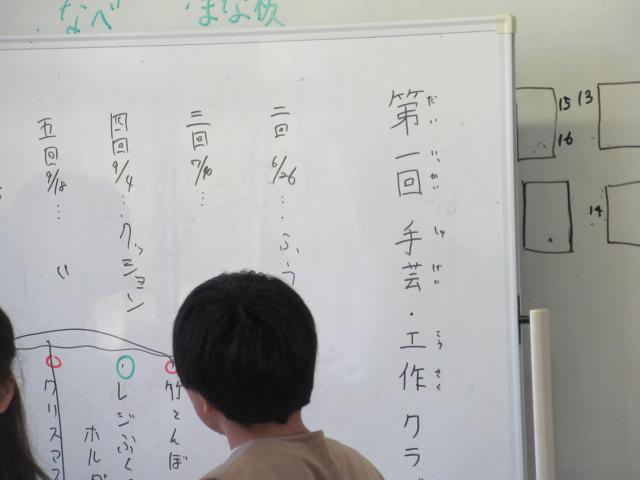 なべ
第一回 手芸・工作 クラブ
だい いっ かい しゅ げい こう さく
二回 6/26 ... ぶつ
三回 7/10 ...
四回 9/4 ... クッション
五回 9/18 ... い
竹とんぼ
レジぶく
ホルダ
クリスマス
13
15
16
14